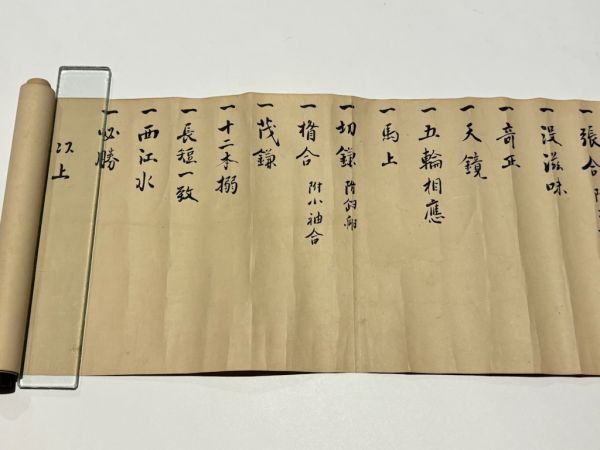 一張合
一没滋味
一奇正
一天鏡
一五輪相應
一馬上
一切鎌 附釣舟
一楯合 附小袖合
一茂鎌
一十二本搦
一長短一致
一西江水
一必勝
以上